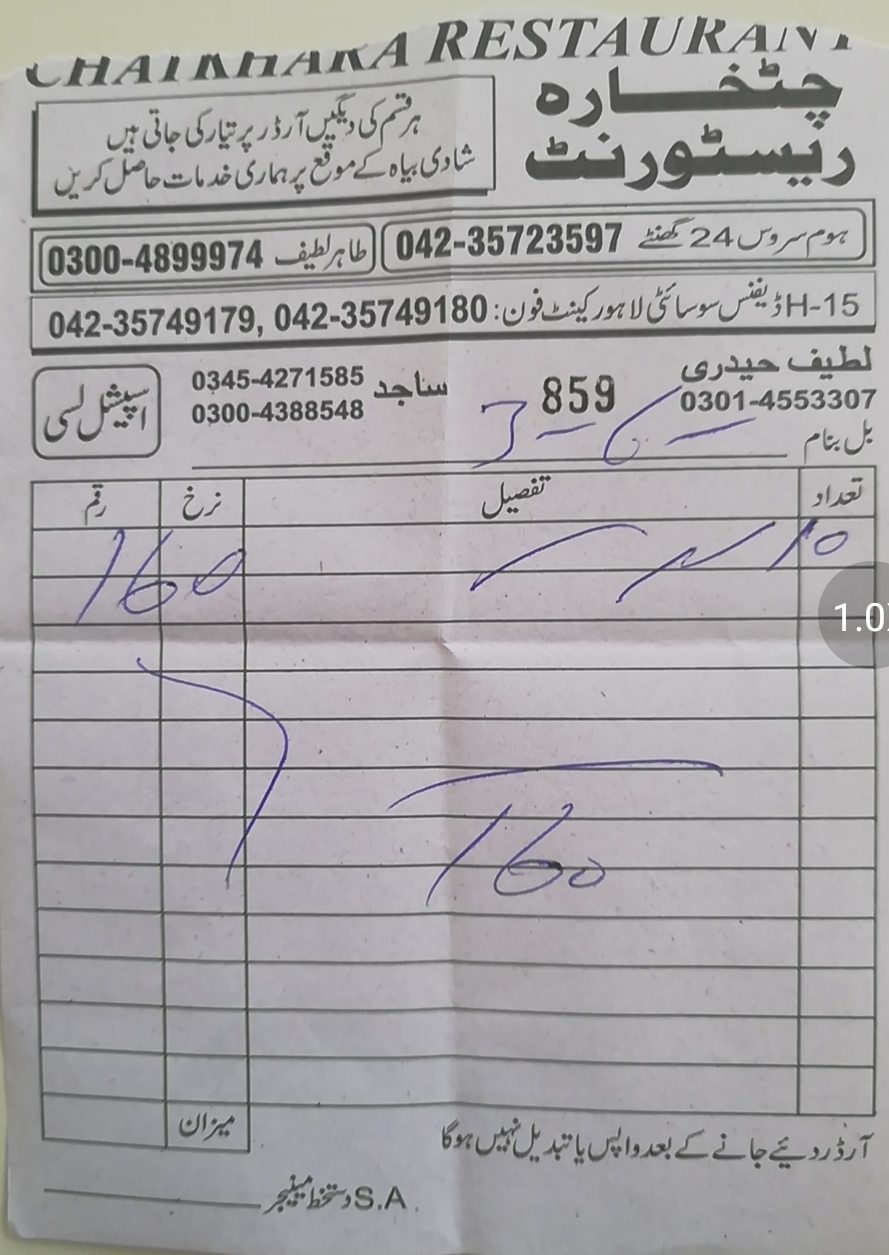 CHATKHARA RESTAURANT
چٹخارہ
ریسٹورنٹ
ہر قسم کی دیگیں آرڈر پر تیار کی جاتی ہیں
شادی بیاہ کے موقع پر ہماری خدمات حاصل کریں
ہوم سروس 24 گھنٹے 042-35723597
طاہر لطیف 0300-4899974
H-15 ڈیفنس سوسائٹی لاہور کینٹ فون: 042-35749179, 042-35749180
لطیف حیدری
0301-4553307
859
ساجد 0345-4271585
0300-4388548
اسپیشل لسی
بل بنام
3-6-
تعداد تفصیل نرخ رقم
10 160
160
میزان
آرڈر دیئے جانے کے بعد واپس یا تبدیل نہیں ہوگا
S.A دستخط مینیجر
1.0x